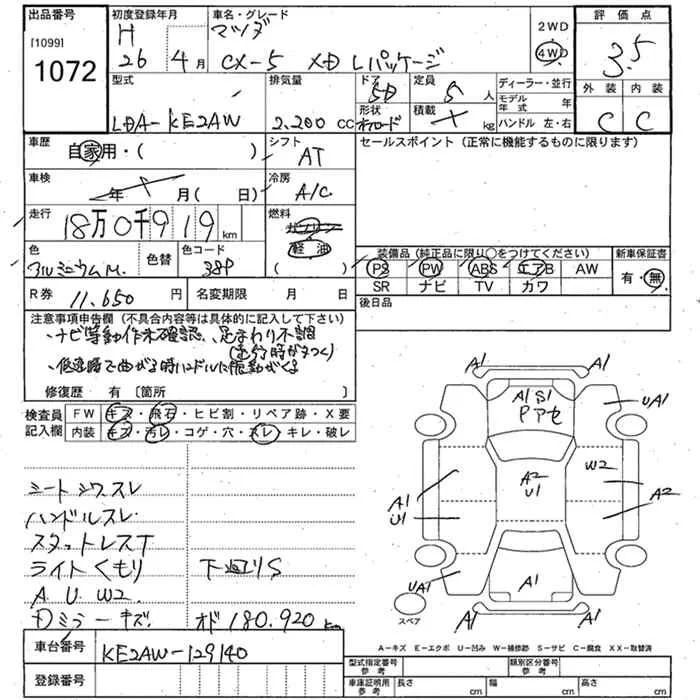 出品番号
[1099]
1072
初度登録年月
H
26 4月
車名・グレード
マツダ
CX-5 XD Lパッケージ
2WD
4WD
評価点
3.5
外装 内装
C C
型式
LDA-KE2AW
排気量
2.200 CC
ドア
5D
形状
定員
5 人
積載
kg
ディーラー・並行
モデル年式 年
ハンドル 左・右
車歴
自家用・( )
シフト
AT
セールスポイント (正常に機能するものに限ります)
車検
年 月( 日)
冷房
A/C
走行
18万0千919km
燃料
ガソリン
軽油
( )
色
アルミニウムM.
色替
色コード
38P
装備品 (純正品に限り○をつけてください)
新車保証書
PS PW ABS エアB AW
SR ナビ TV カワ
有・無
R券 11.650 円
名変期限 月 日
後日品
注意事項申告欄 (不具合内容等は具体的に記入して下さい)
・ナビ等動作未確認、足まわり不調
・低速時で曲がる時ハンドルに振動がくる
修復歴 有 〔箇所 〕
検査員記入欄
FW キズ・飛石・ヒビ割・リペア跡・X要
内装 キズ・汚レ・コゲ・穴・スレ・キレ・破レ
シートシワスレ
ハンドルスレ
スタットレスT
ライトくもり 下廻りS
A U W2
Dミラーキズ オド180.920km
A1 A1
A1 S1
Pアセ
UA1
W2
A2
U1
A2
A1
U1
UA1
A1
A1 A1
スペア
車台番号
KE2AW-129140
登録番号
A－キズ E－エクボ U－凹み W－補修跡 S－サビ C－腐食 XX－取替済
型式指定番号 参考
類別区分番号 参考
車庫証明用 参考
長さ cm 幅 cm 高さ cm